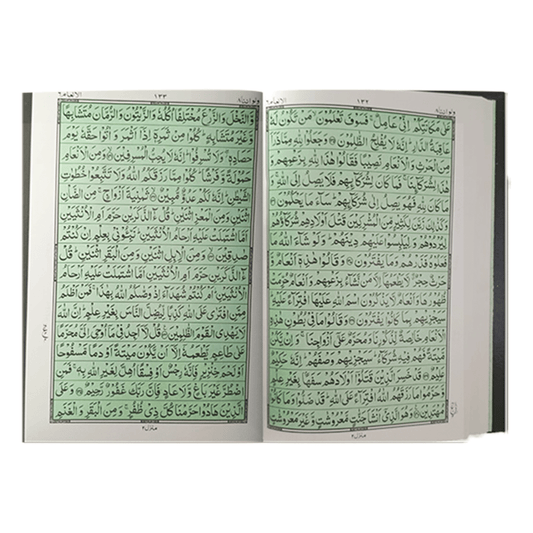 ولواننا ٨
١٣٢
الانعام ٦
عَلٰى مَكَانَتِكُمْ اِنِّىْ عَامِلٌ ۚ فَسَوْفَ تَعْلَمُوْنَ ۙ مَنْ تَكُوْنُ لَهٗ
عَاقِبَةُ الدَّارِ ؕ اِنَّهٗ لَا يُفْلِحُ الظّٰلِمُوْنَ ۝ وَجَعَلُوْا لِلّٰهِ مِمَّا ذَرَاَ
مِنَ الْحَرْثِ وَ الْاَنْعَامِ نَصِيْبًا فَقَالُوْا هٰذَا لِلّٰهِ بِزَعْمِهِمْ وَ
هٰذَا لِشُرَكَآئِنَا ۚ فَمَا كَانَ لِشُرَكَآئِهِمْ فَلَا يَصِلُ اِلَى اللّٰهِ ۚ وَ
مَا كَانَ لِلّٰهِ فَهُوَ يَصِلُ اِلٰى شُرَكَآئِهِمْ ؕ سَآءَ مَا يَحْكُمُوْنَ ۝
وَكَذٰلِكَ زَيَّنَ لِكَثِيْرٍ مِّنَ الْمُشْرِكِيْنَ قَتْلَ اَوْلَادِهِمْ شُرَكَآؤُهُمْ
لِيُرْدُوْهُمْ وَ لِيَلْبِسُوْا عَلَيْهِمْ دِيْنَهُمْ ؕ وَلَوْ شَآءَ اللّٰهُ مَا
فَعَلُوْهُ فَذَرْهُمْ وَمَا يَفْتَرُوْنَ ۝ وَ قَالُوْا هٰذِهٖۤ اَنْعَامٌ وَّ
حَرْثٌ حِجْرٌ ۖ لَّا يَطْعَمُهَاۤ اِلَّا مَنْ نَّشَآءُ بِزَعْمِهِمْ وَ اَنْعَامٌ حُرِّمَتْ
ظُهُوْرُهَا وَ اَنْعَامٌ لَّا يَذْكُرُوْنَ اسْمَ اللّٰهِ عَلَيْهَا افْتِرَآءً عَلَيْهِ ؕ
سَيَجْزِيْهِمْ بِمَا كَانُوْا يَفْتَرُوْنَ ۝ وَ قَالُوْا مَا فِىْ بُطُوْنِ هٰذِهِ
الْاَنْعَامِ خَالِصَةٌ لِّذُكُوْرِنَا وَ مُحَرَّمٌ عَلٰٓى اَزْوَاجِنَا ۚ وَ اِنْ يَّكُنْ
مَّيْتَةً فَهُمْ فِيْهِ شُرَكَآءُ ؕ سَيَجْزِيْهِمْ وَصْفَهُمْ ؕ اِنَّهٗ حَكِيْمٌ
عَلِيْمٌ ۝ قَدْ خَسِرَ الَّذِيْنَ قَتَلُوْۤا اَوْلَادَهُمْ سَفَهًۢا بِغَيْرِ عِلْمٍ وَّ
حَرَّمُوْا مَا رَزَقَهُمُ اللّٰهُ افْتِرَآءً عَلَى اللّٰهِ ؕ قَدْ ضَلُّوْا وَمَا كَانُوْا
مُهْتَدِيْنَ ۝ وَهُوَ الَّذِىْۤ اَنْشَاَ جَنّٰتٍ مَّعْرُوْشٰتٍ وَّ غَيْرَ مَعْرُوْشٰتٍ
منزل ٢
ولواننا ٨
١٣٣
الانعام ٦
وَّ النَّخْلَ وَ الزَّرْعَ مُخْتَلِفًا اُكُلُهٗ وَ الزَّيْتُوْنَ وَ الرُّمَّانَ مُتَشَابِهًا
وَّ غَيْرَ مُتَشَابِهٍ ؕ كُلُوْا مِنْ ثَمَرِهٖۤ اِذَاۤ اَثْمَرَ وَ اٰتُوْا حَقَّهٗ يَوْمَ
حَصَادِهٖ ۖ وَ لَا تُسْرِفُوْا ؕ اِنَّهٗ لَا يُحِبُّ الْمُسْرِفِيْنَ ۝ وَ مِنَ الْاَنْعَامِ
حَمُوْلَةً وَّ فَرْشًا ؕ كُلُوْا مِمَّا رَزَقَكُمُ اللّٰهُ وَلَا تَتَّبِعُوْا خُطُوٰتِ
الشَّيْطٰنِ ؕ اِنَّهٗ لَكُمْ عَدُوٌّ مُّبِيْنٌ ۝ ثَمٰنِيَةَ اَزْوَاجٍ ۚ مِنَ الضَّاْنِ
اثْنَيْنِ وَ مِنَ الْمَعْزِ اثْنَيْنِ ؕ قُلْ ءٰٓالذَّكَرَيْنِ حَرَّمَ اَمِ الْاُنْثَيَيْنِ
اَمَّا اشْتَمَلَتْ عَلَيْهِ اَرْحَامُ الْاُنْثَيَيْنِ ؕ نَبِّـُٔوْنِىْ بِعِلْمٍ اِنْ كُنْتُمْ
صٰدِقِيْنَ ۝ وَ مِنَ الْاِبِلِ اثْنَيْنِ وَ مِنَ الْبَقَرِ اثْنَيْنِ ؕ قُلْ
ءٰٓالذَّكَرَيْنِ حَرَّمَ اَمِ الْاُنْثَيَيْنِ اَمَّا اشْتَمَلَتْ عَلَيْهِ اَرْحَامُ
الْاُنْثَيَيْنِ ؕ اَمْ كُنْتُمْ شُهَدَآءَ اِذْ وَصّٰىكُمُ اللّٰهُ بِهٰذَا ۚ فَمَنْ اَظْلَمُ
مِمَّنِ افْتَرٰى عَلَى اللّٰهِ كَذِبًا لِّيُضِلَّ النَّاسَ بِغَيْرِ عِلْمٍ ؕ اِنَّ اللّٰهَ
لَا يَهْدِى الْقَوْمَ الظّٰلِمِيْنَ ۝ قُلْ لَّاۤ اَجِدُ فِىْ مَاۤ اُوْحِىَ اِلَىَّ مُحَرَّمًا
عَلٰى طَاعِمٍ يَّطْعَمُهٗۤ اِلَّاۤ اَنْ يَّكُوْنَ مَيْتَةً اَوْ دَمًا مَّسْفُوْحًا
اَوْ لَحْمَ خِنْزِيْرٍ فَاِنَّهٗ رِجْسٌ اَوْ فِسْقًا اُهِلَّ لِغَيْرِ اللّٰهِ بِهٖ ۚ فَمَنِ
اضْطُرَّ غَيْرَ بَاغٍ وَّ لَا عَادٍ فَاِنَّ رَبَّكَ غَفُوْرٌ رَّحِيْمٌ ۝ وَ عَلَى
الَّذِيْنَ هَادُوْا حَرَّمْنَا كُلَّ ذِىْ ظُفُرٍ ۚ وَ مِنَ الْبَقَرِ وَ الْغَنَمِ
منزل ٢